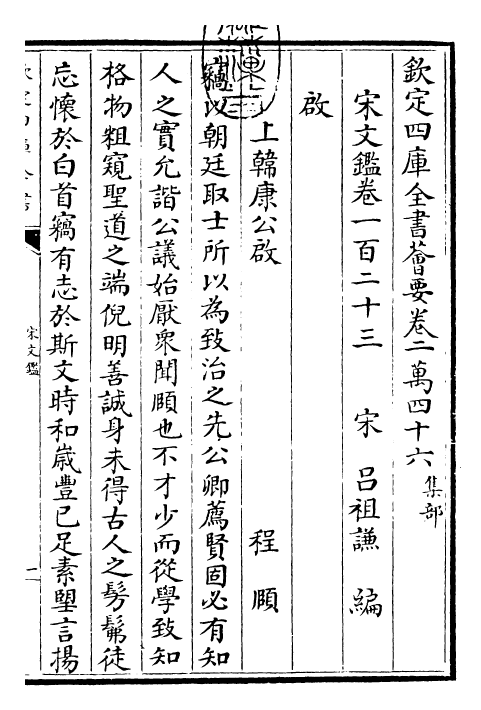 欽定四庫全書薈要卷二萬四十六 集部
宋文鑑卷一百二十三 宋 呂祖謙 編
啟
上韓康公啟 程頤
竊以朝廷取士所以為致治之先公卿薦賢固必有知
人之實允諧公議始厭衆聞頤也不才少而從學致知
格物粗窺聖道之端倪明善誠身未得古人之髣髴徒
忘懷於白首竊有志於斯文時和嵗豐已足素望言揚
宋文鑑
一